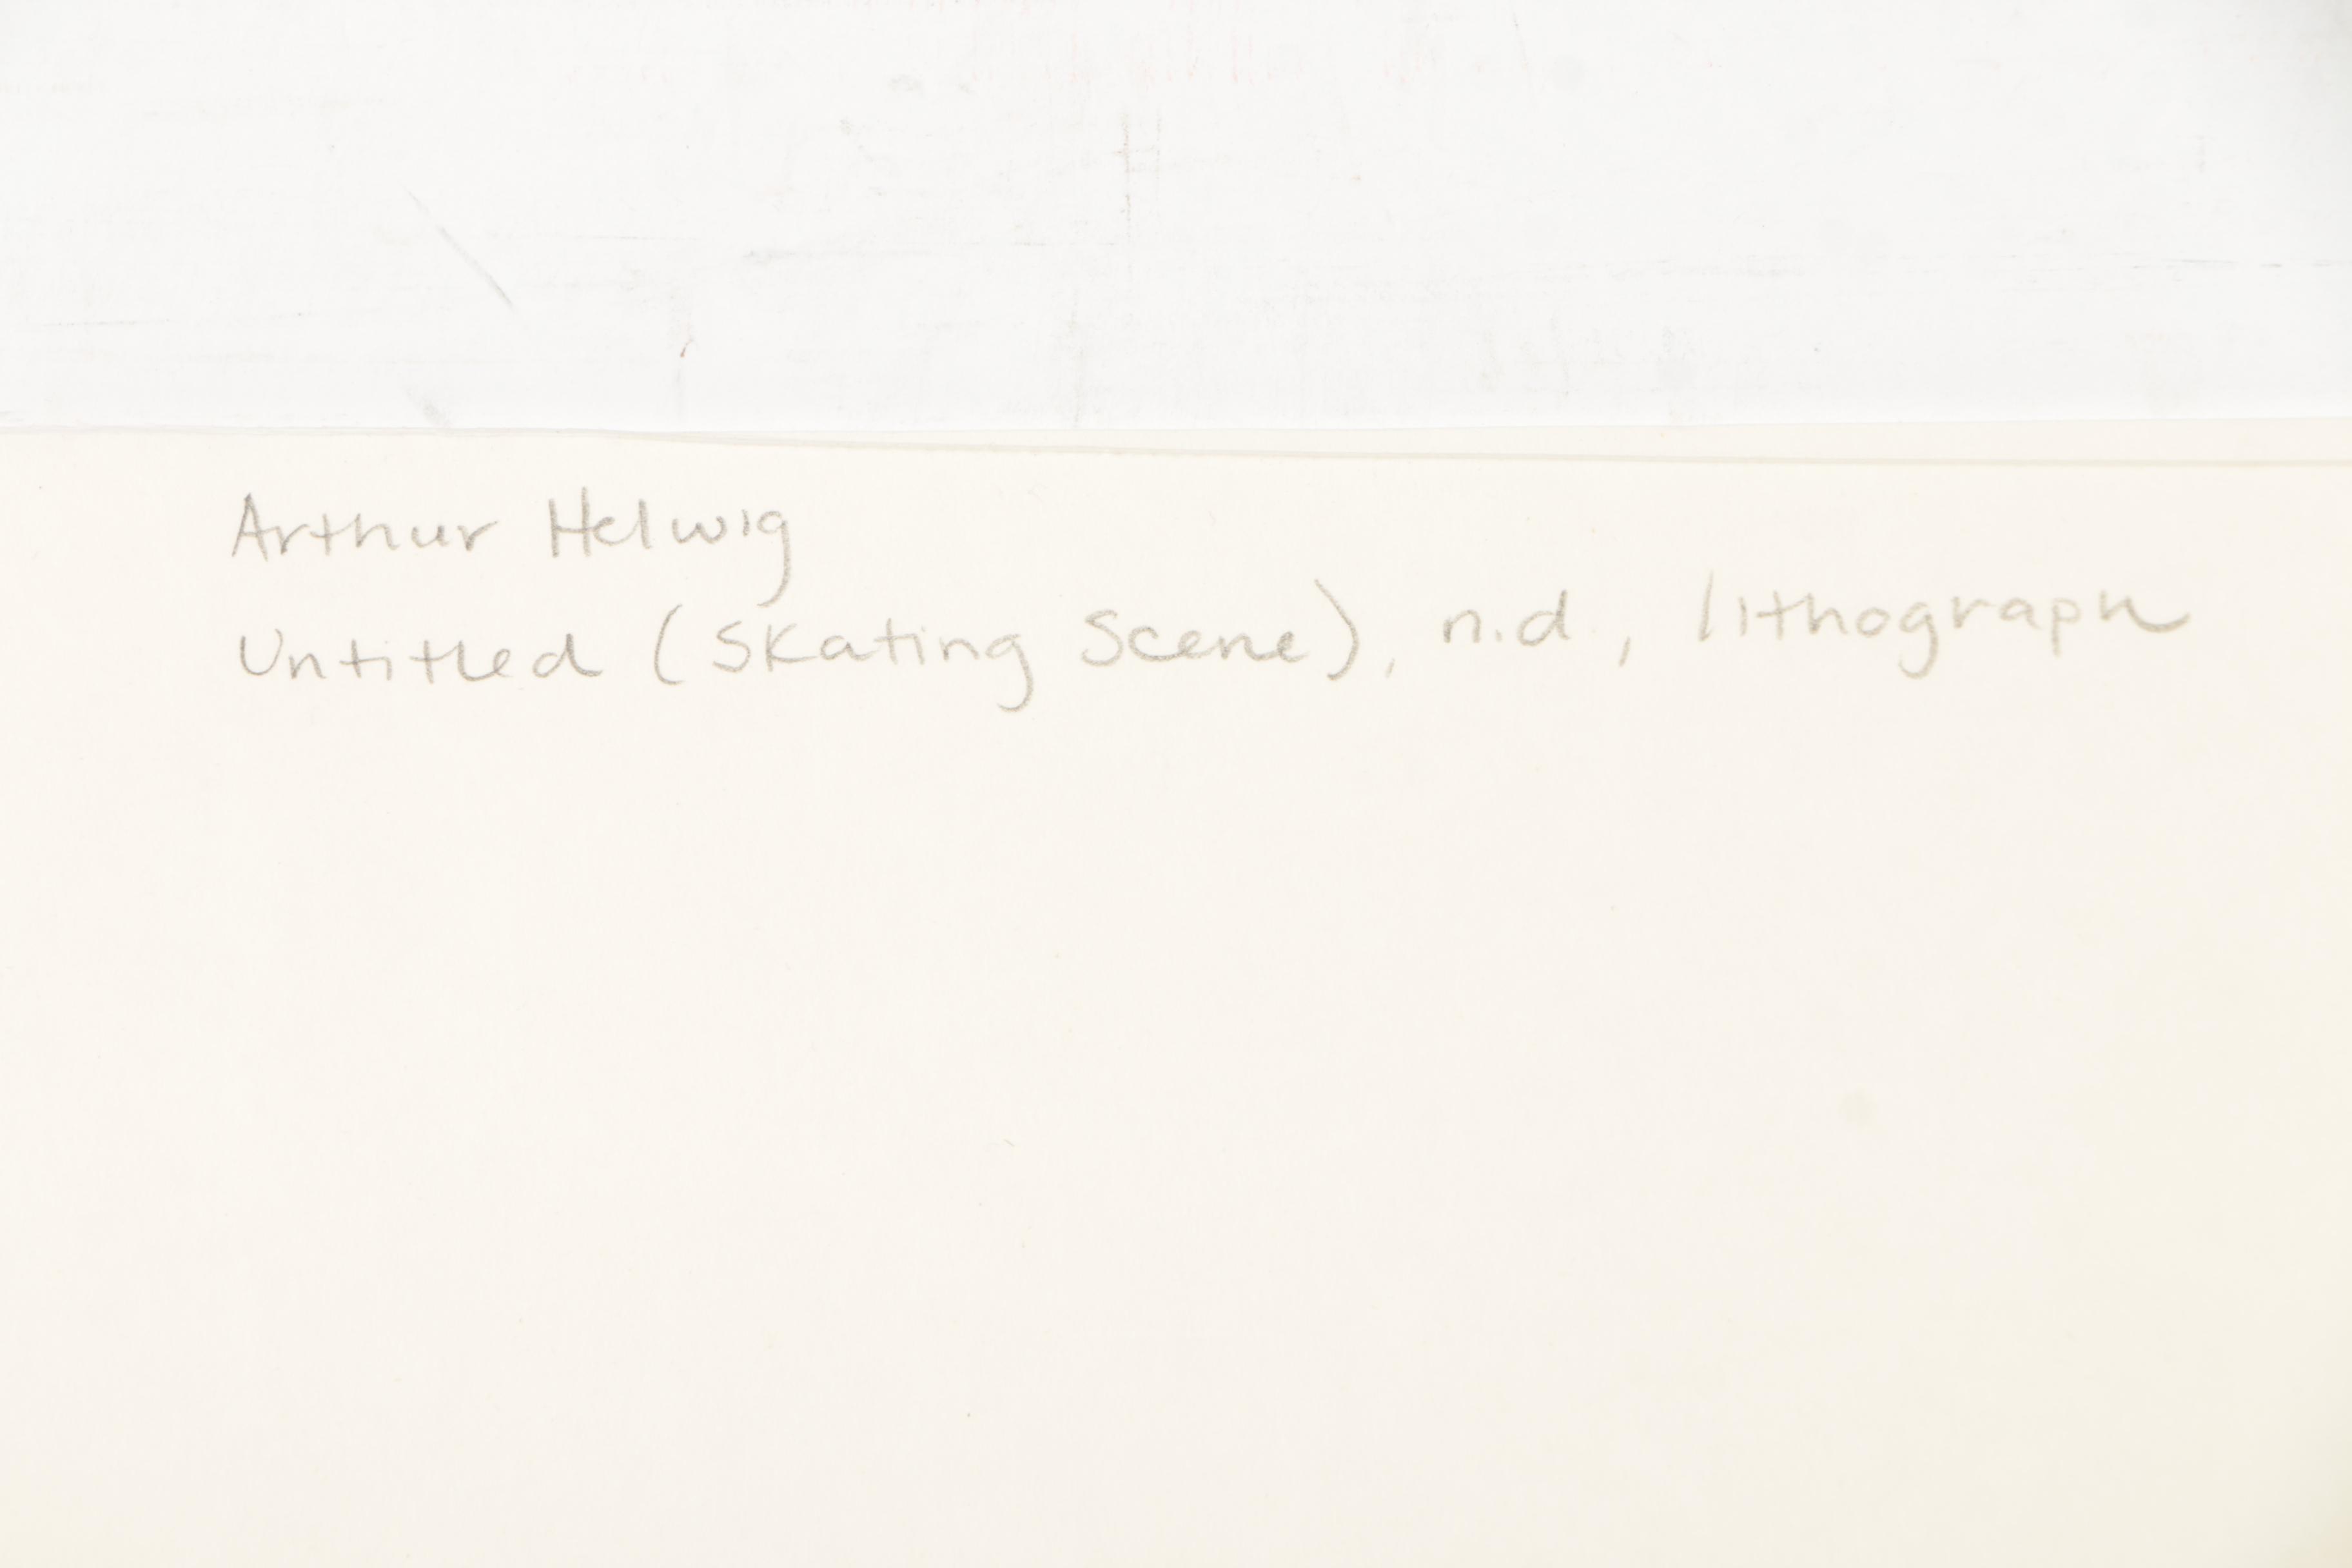 Arthur Helwig
Untitled (Skating Scene), n.d., lithograph